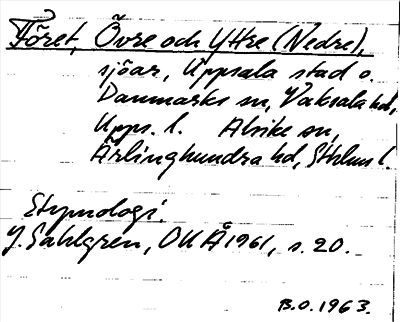 Föret, Övre och Yttre (Nedre),
sjöar, Uppsala stad o.
Danmarks sn, Vaksala hd,
Upps. l. Alsike sn,
Ärlinghundra hd, Sthlms l.
Etymologi.
J. Sahlgren, OUÅ 1961, s. 20.
B.O. 1963.